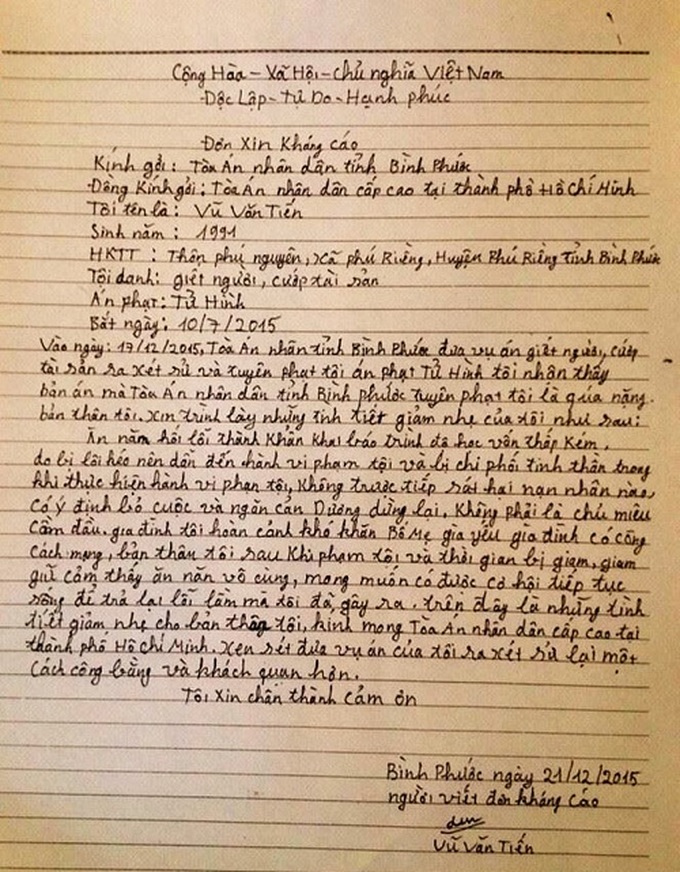 Cộng Hòa - Xã Hội - chủ nghĩa Việt Nam
Độc Lập - Tự Do - Hạnh phúc
Đơn Xin Kháng cáo
Kính gởi : Tòa Án nhân dân tỉnh Bình Phước
Đồng Kính gởi : Tòa Án nhân dân cấp cao tại thành phố Hồ Chí Minh
Tôi tên là : Vũ Văn Tiến
Sinh năm : 1991
HKTT : Thôn phú nguyên, Xã phú Riềng, Huyện Phú Riềng Tỉnh Bình Phước
Tội danh: giết người, cướp tài sản
Án phạt : Tử Hình
Bắt ngày: 10/7/2015
Vào ngày: 17/12/2015, Tòa Án nhân tỉnh Bình Phước đưa vụ án giết người, cướp
tài sản ra xét sử và tuyên phạt tôi án phạt Tử Hình tôi nhận thấy
bản án mà Tòa Án nhân dân tỉnh Bình phước tuyên phạt tôi là quá nặng.
bản thân tôi. Xin trình bày những tình tiết giảm nhẹ của tôi như sau:
Ăn năn hối lỗi thành Khẩn Khai báo trình độ học vấn thấp Kém,
do bị lôi kéo nên dẫn đến hành vi phạm tội và bị chi phối tinh thần trong
khi thực hiện hành vi phạm tội, Không trước tiếp sát hại nạn nhân nào,
Có ý định bỏ cuộc và ngăn cản Dương dừng lại. Không phải là chủ miêu
Cầm đầu. gia đình tôi hoàn cảnh khó khăn Bố Mẹ già yếu gia đình có công
Cách mạng, bản thân tôi sau Khi phạm tội và thời gian bị giam, giam
giữ cảm thấy ăn năn vô cùng, mong muốn có được cơ hội tiếp tục
sống để trả lại lỗi lầm mà tôi đã, gây ra. trên đây là những tình
tiết giảm nhẹ cho bản thân tội, kính mong Tòa Án nhân dân cấp cao tại
thành phố Hồ Chí Minh. Xem sét đưa vụ án của tôi ra xét sử lại một
Cách công bằng và khách quan hơn.
Tôi Xin chân thành cảm ơn
Bình Phước ngày 21/12/2015
người viết đơn kháng cáo
Vũ Văn Tiến